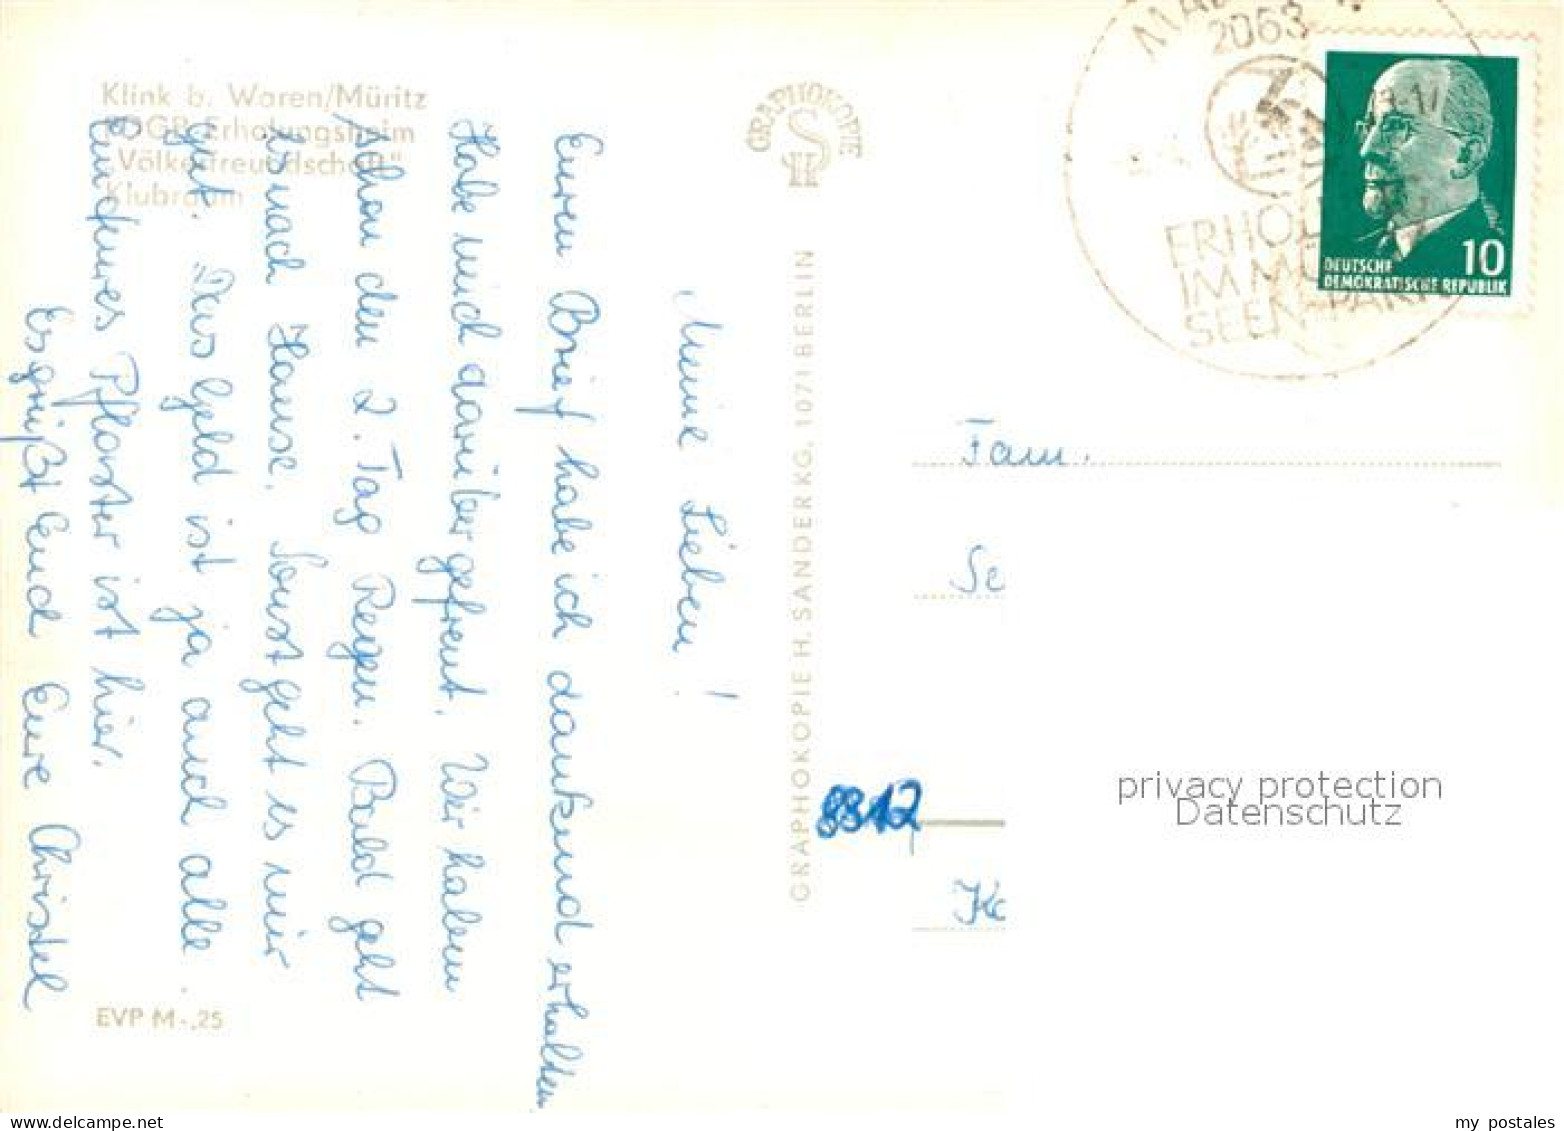 Klink b. Waren/Müritz
FDGB-Erholungsheim
"Völkerfreundschaft"
Klubraum
Meine Lieben!
Euren Brief habe ich dankend erhalten
Habe mich darüber gefreut. Wir haben
schon den 2. Tag Regen. Bald geht
es nach Hause. Sonst geht es mir
gut. Das Geld ist ja auch alle.
ein teures Pflaster ist hier.
Es grüßt Euch Eure Christel
EVP M -,25
GRAPHOKOPIE
HS
GRAPHOKOPIE H. SANDER KG. 1071 BERLIN
2063
ERHOL
IM MÜ
SEEN-PARK
10
DEUTSCHE
DEMOKRATISCHE REPUBLIK
Fam.
Se
8312
Ka
privacy protection
Datenschutz
my postales